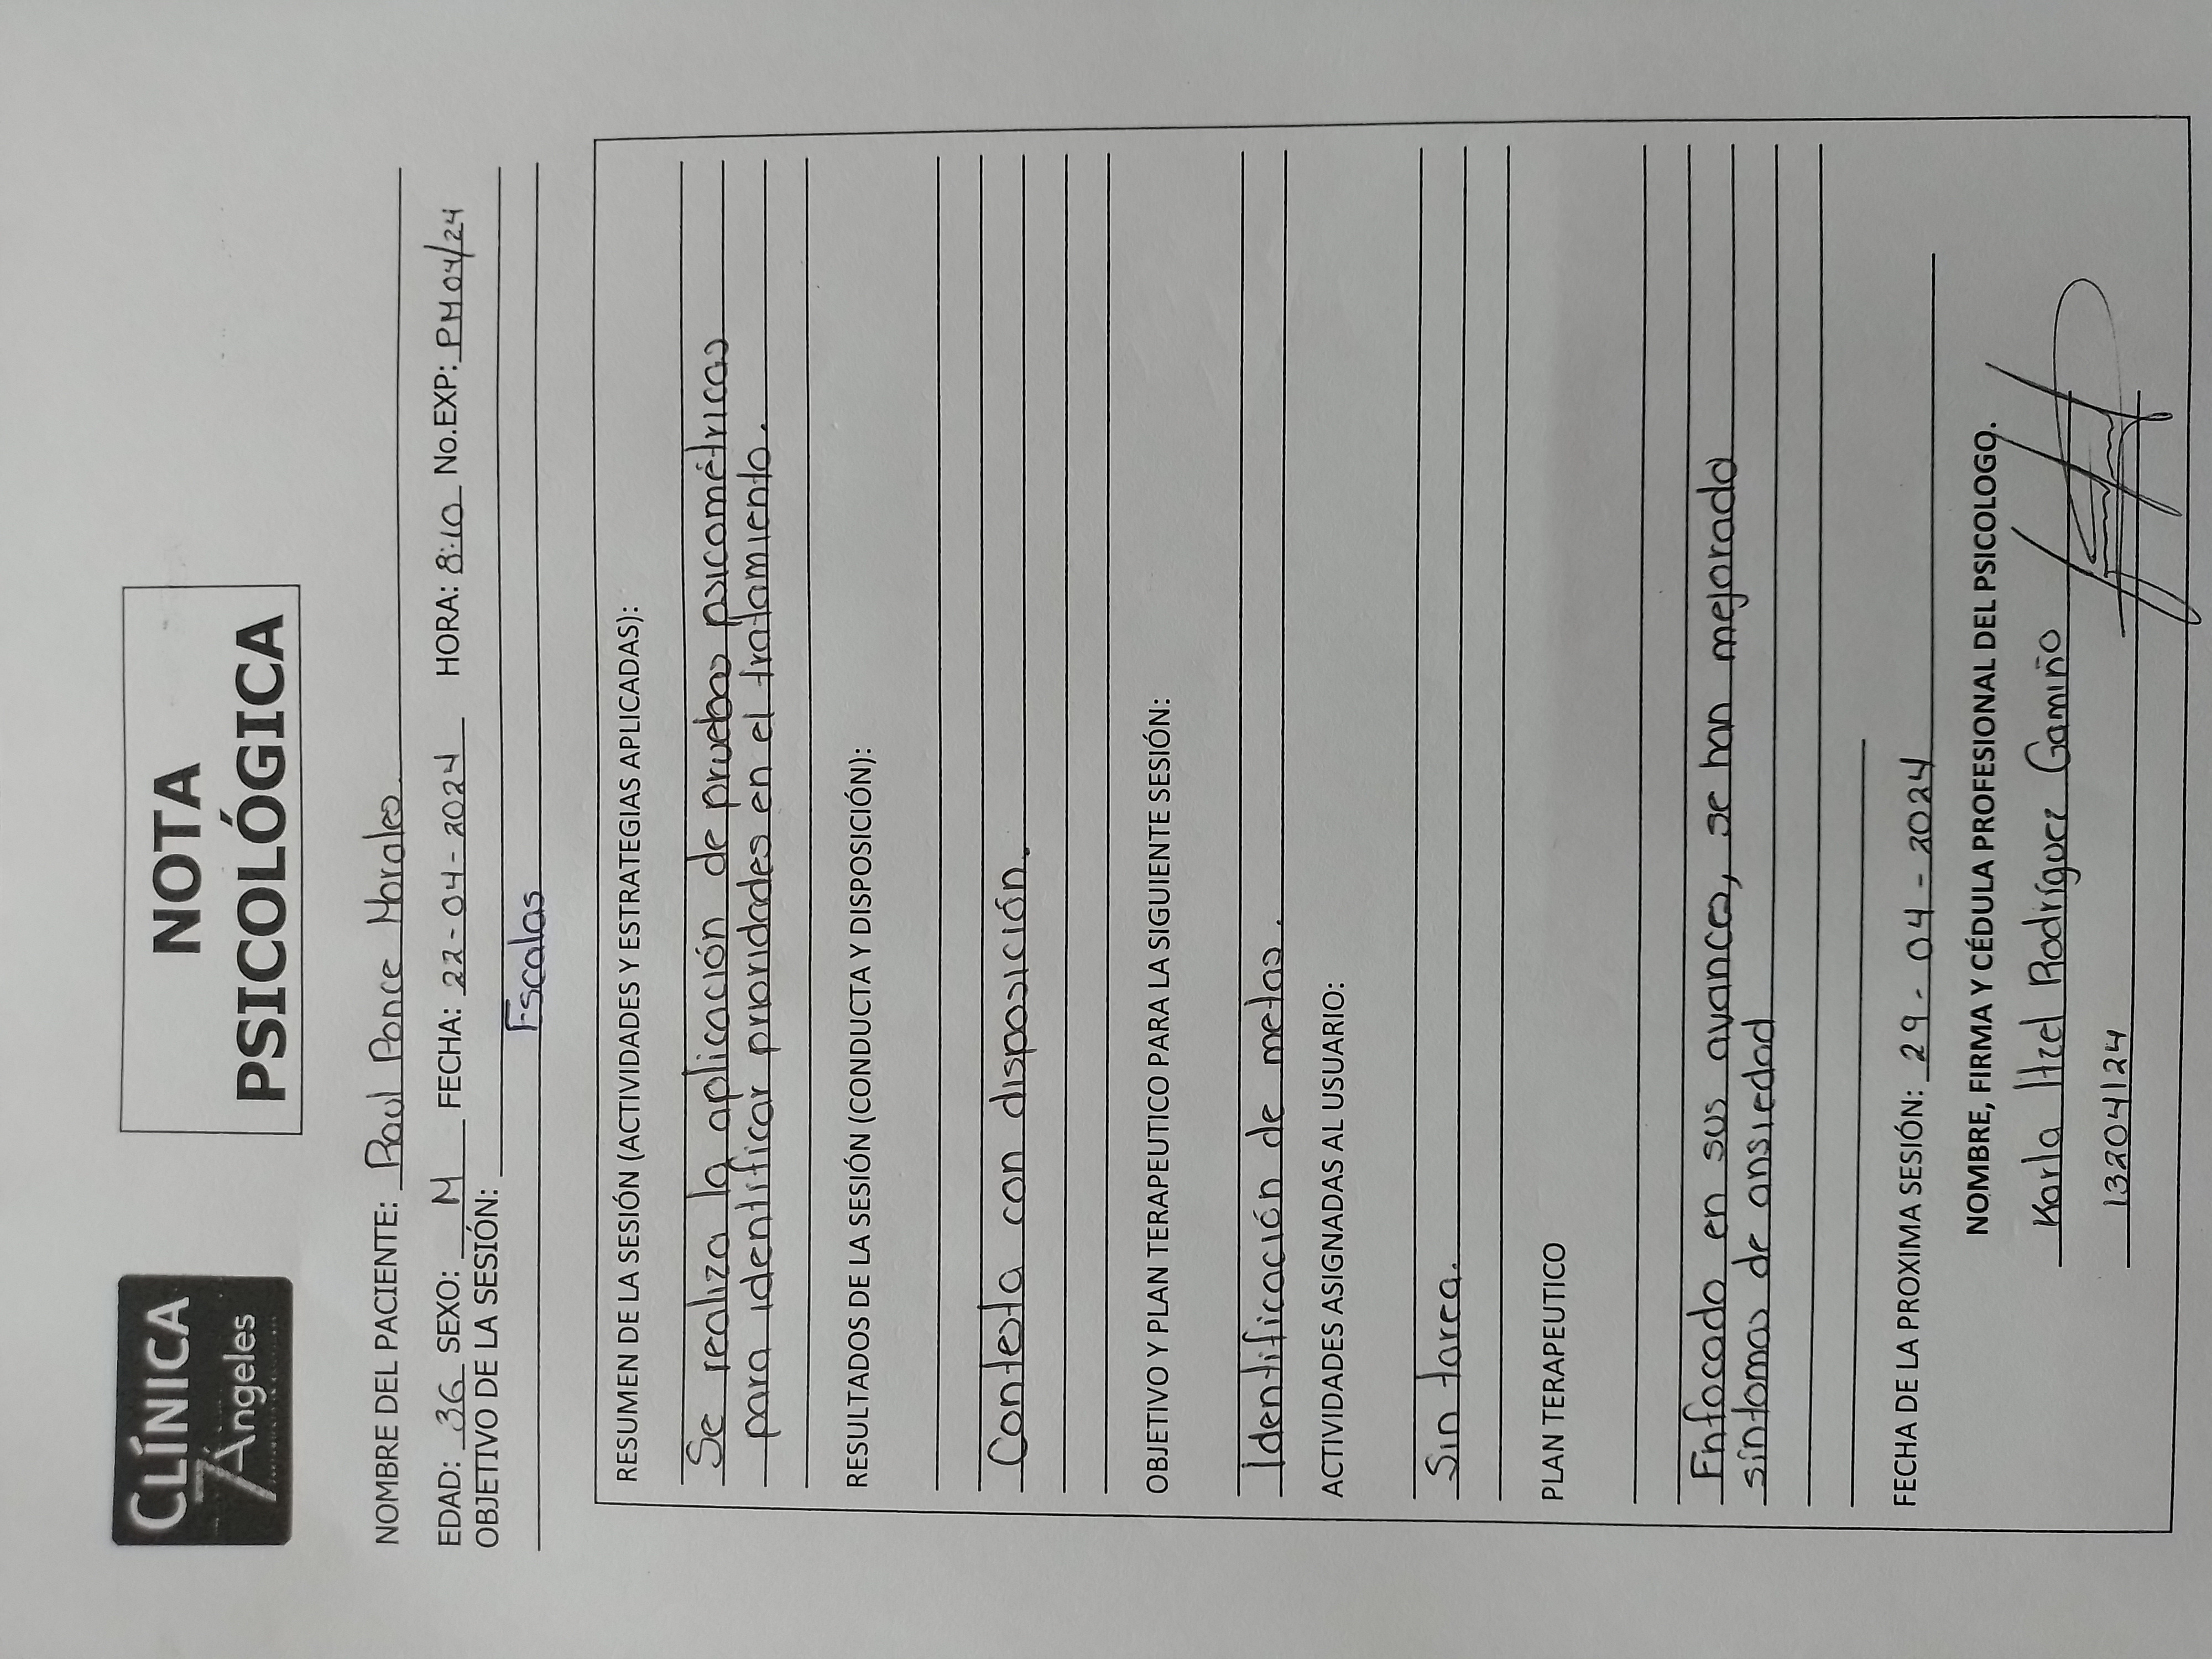 CLÍNICA
7 Ángeles
NOTA
PSICOLÓGICA
NOMBRE DEL PACIENTE: Raul Ponce Morales
EDAD: 36 SEXO: M FECHA: 22-04-2024 HORA: 8:10 No.EXP: PM04/24
OBJETIVO DE LA SESIÓN:
Escalas
RESUMEN DE LA SESIÓN (ACTIVIDADES Y ESTRATEGIAS APLICADAS):
Se realiza la aplicación de pruebas psicométricas
para identificar prioridades en el tratamiento.
RESULTADOS DE LA SESIÓN (CONDUCTA Y DISPOSICIÓN):
Contesta con disposición.
OBJETIVO Y PLAN TERAPEUTICO PARA LA SIGUIENTE SESIÓN:
Identificación de metas.
ACTIVIDADES ASIGNADAS AL USUARIO:
Sin tarea.
PLAN TERAPEUTICO
Enfocado en sus avances, se han mejorado
síntomas de ansiedad
FECHA DE LA PROXIMA SESIÓN: 29-04-2024
NOMBRE, FIRMA Y CÉDULA PROFESIONAL DEL PSICOLOGO.
Karla Itzel Rodríguez Gamiño
13204124